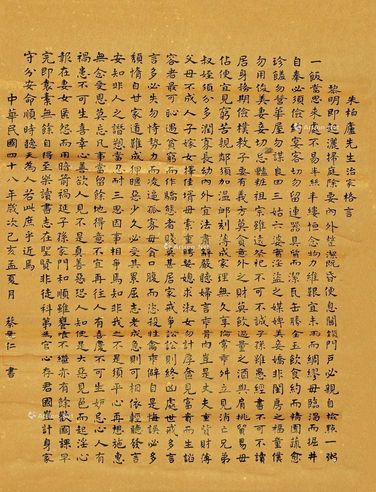 朱柏廬先生治家格言
黎明即起灑掃庭除要內外整潔既昏便息關鎖門戶必親自檢點一粥
一飯當思來處不易半絲半縷恒念物力維艱宜未雨而綢繆毋臨渴而掘井
自奉必須儉約宴客切勿留連器具質而潔瓦缶勝金玉飲食約而精園蔬愈
珍饈勿營華屋勿謀良田三姑六婆實淫盜之媒婢美妾嬌非閨房之福童僕
勿用俊美妻妾切忌豔粧祖宗雖遠祭祀不可不誠子孫雖愚經書不可不讀
居身務期儉樸教子要有義方莫貪意外之財莫飲過量之酒與肩挑貿易毋
佔便宜見窮苦親鄰須加溫卹刻薄成家理無久享倫常乖舛立見消亡兄弟
叔姪須分多潤寡長幼內外宜法肅辭嚴聽婦言乖骨肉豈是丈夫重貲財薄
父母不成人子嫁女擇佳壻毋索重聘娶媳求淑女勿計厚奩見富貴而生諂
容者最可恥遇貧窮而作驕態者賤莫甚居家戒爭訟訟則終凶處世戒多言
言多必失勿恃勢力而凌逼孤寡毋貪口腹而恣殺牲禽乖僻自是悔誤必多
頹惰自甘家道難成狎暱惡少久必受其累屈志老成急則可相依輕聽發言
安知非人之譖愬當忍耐三思因事相爭焉知非我之不是須平心再想施惠
無念受恩莫忘凡事當留餘地得意不宜再往人有喜慶不可生妒忌心人有
禍患不可生喜幸心善欲人見不是真善惡恐人知便是大惡見色而起淫心
報在妻女匿怨而用暗箭禍延子孫家門和順雖饔飧不繼亦有餘歡國課早
完即囊橐無餘自得至樂讀書志在聖賢非徒科第為官心存君國豈計身家
守分安命順時聽天為人若此庶乎近焉
中華民國四十八年歲次己亥孟夏月 蔡 仁 書